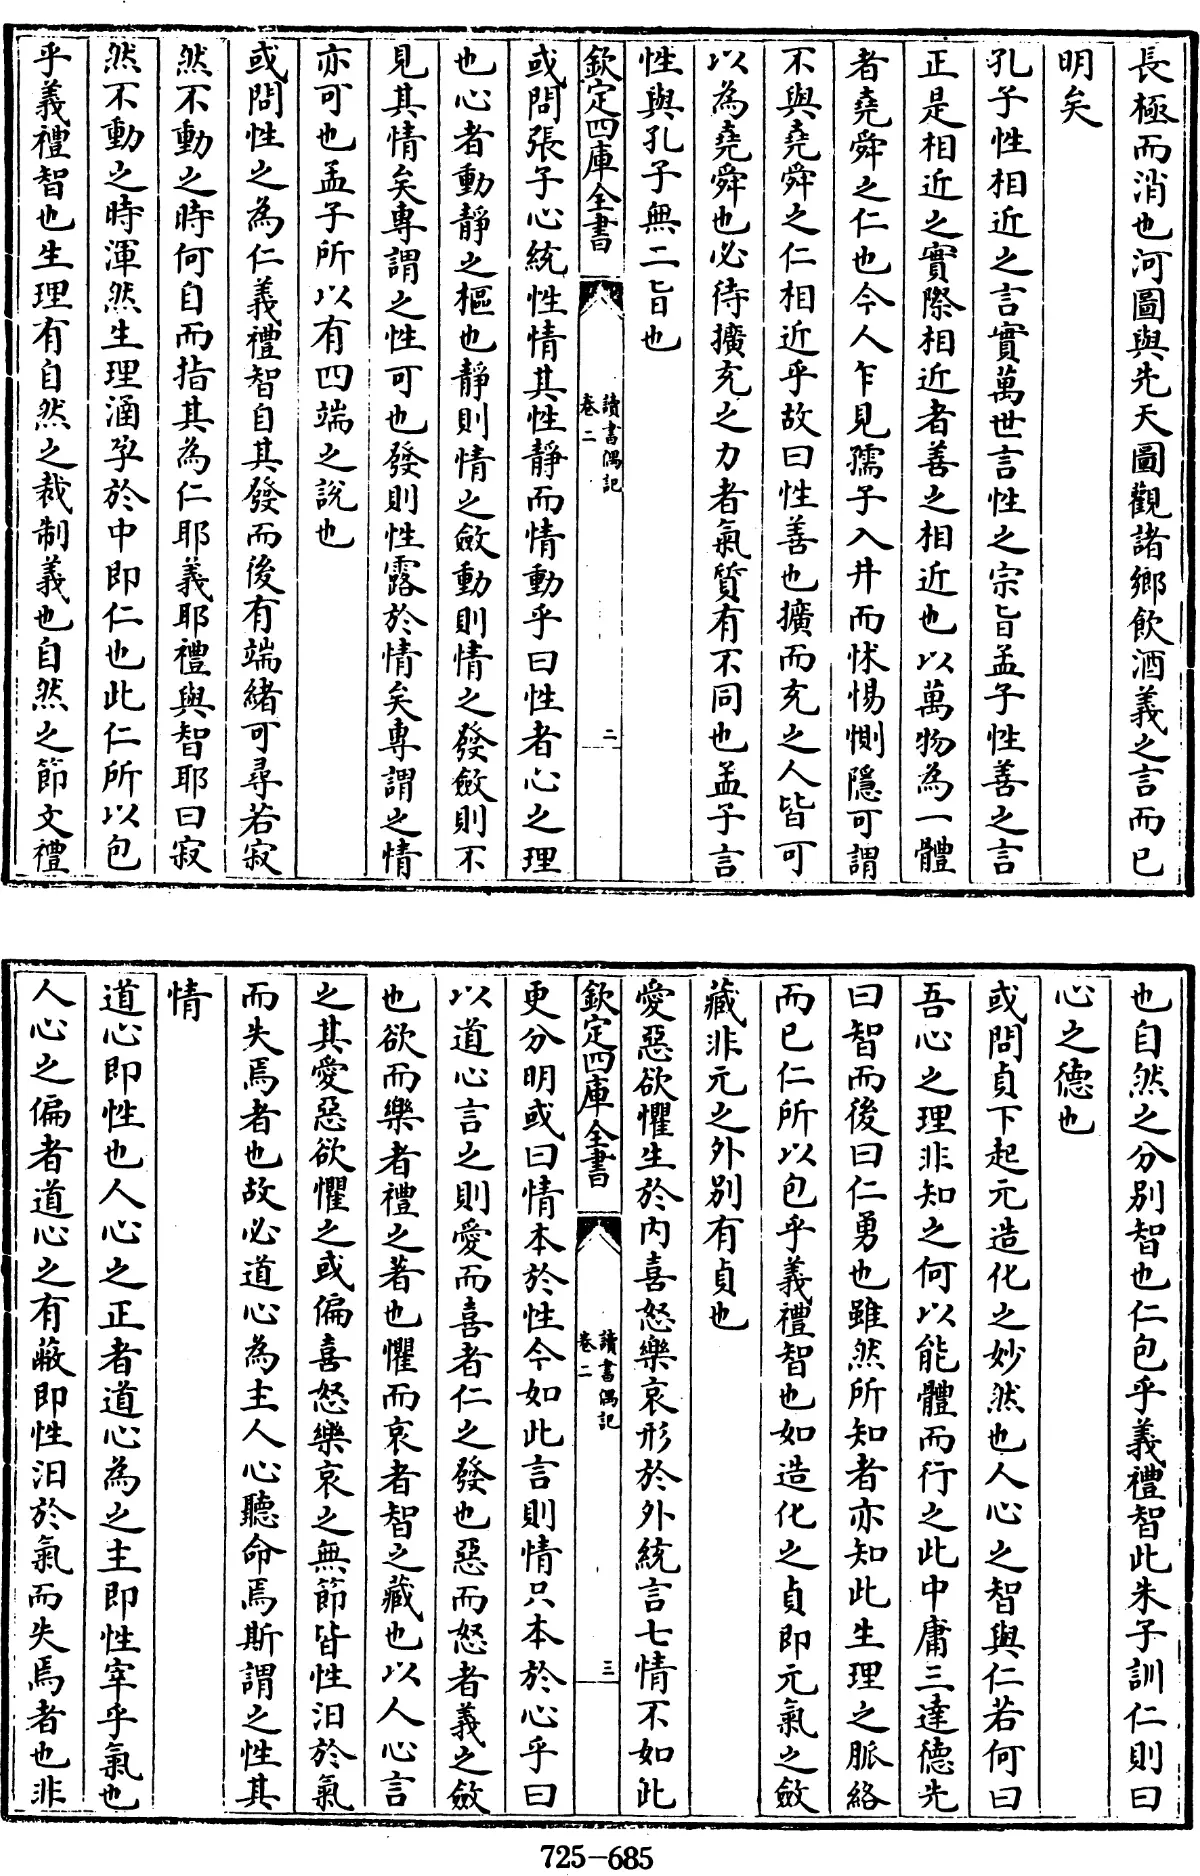 長極而消也河圖與先天圖觀諸鄉飲酒義之言而已
明矣
孔子性相近之言實萬世言性之宗旨孟子性善之言
正是相近之實際相近者善之相近也以萬物為一體
者堯舜之仁也今人乍見孺子入井而怵惕惻隱可謂
不與堯舜之仁相近乎故曰性善也擴而充之人皆可
以為堯舜也必待擴充之力者氣質有不同也孟子言
性與孔子無二旨也
欽定四庫全書
讀書偶記
卷二
二
或問張子心統性情其性靜而情動乎曰性者心之理
也心者動靜之樞也靜則情之斂動則情之發斂則不
見其情矣專謂之性可也發則性露於情矣專謂之情
亦可也孟子所以有四端之說也
或問性之為仁義禮智自其發而後有端緒可尋若寂
然不動之時何自而指其為仁耶義耶禮與智耶曰寂
然不動之時渾然生理涵孕於中即仁也此仁所以包
乎義禮智也生理有自然之裁制義也自然之節文禮
也自然之分別智也仁包乎義禮智此朱子訓仁則曰
心之德也
或問貞下起元造化之妙然也人心之智與仁若何曰
吾心之理非知之何以能體而行之此中庸三達德先
曰智而後曰仁勇也雖然所知者亦知此生理之脈絡
而已仁所以包乎義禮智也如造化之貞即元氣之斂
藏非元之外別有貞也
愛惡欲懼生於內喜怒樂哀形於外統言七情不如此
欽定四庫全書
讀書偶記
卷二
三
更分明或曰情本於性今如此言則情只本於心乎曰
以道心言之則愛而喜者仁之發也惡而怒者義之斂
也欲而樂者禮之著也懼而哀者智之藏也以人心言
之其愛惡欲懼之或偏喜怒樂哀之無節皆性汩於氣
而失焉者也故必道心為主人心聽命焉斯謂之性其
情
道心即性也人心之正者道心為之主即性宰乎氣也
人心之偏者道心之有蔽即性汩於氣而失焉者也非
725-685